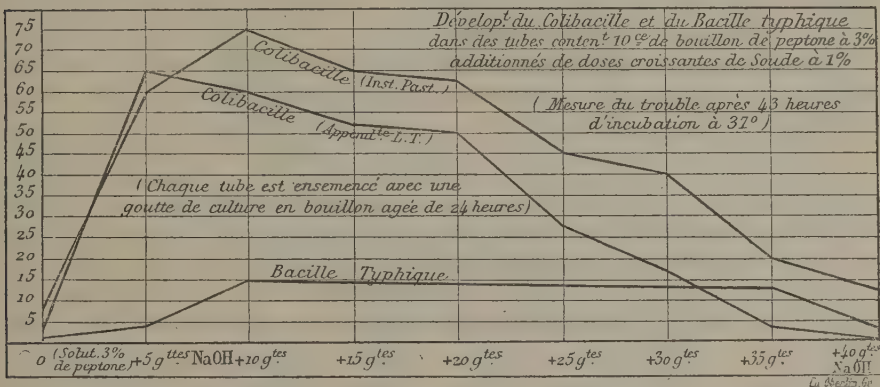 Dévelop.t du Colibacille et du Bacille typhique
dans des tubes conten.t 10 cc de bouillon de peptone à 3%
additionnés de doses croissantes de Soude à 1%
(Mesure du trouble après 43 heures
d'incubation à 37°)
75
70
65
60
55
50
45
40
35
30
25
20
15
10
5
Colibacille (Inst. Past.)
Colibacille (Append.te L.T.)
(Chaque tube est ensemencé avec une
goutte de culture en bouillon agée de 24 heures)
Bacille Typhique
0 (Solut. 3% de peptone) +5 gttes NaOH +10 gtes +15 gtes +20 gtes +25 gtes +30 gtes +35 gtes +40 gtes NaOH